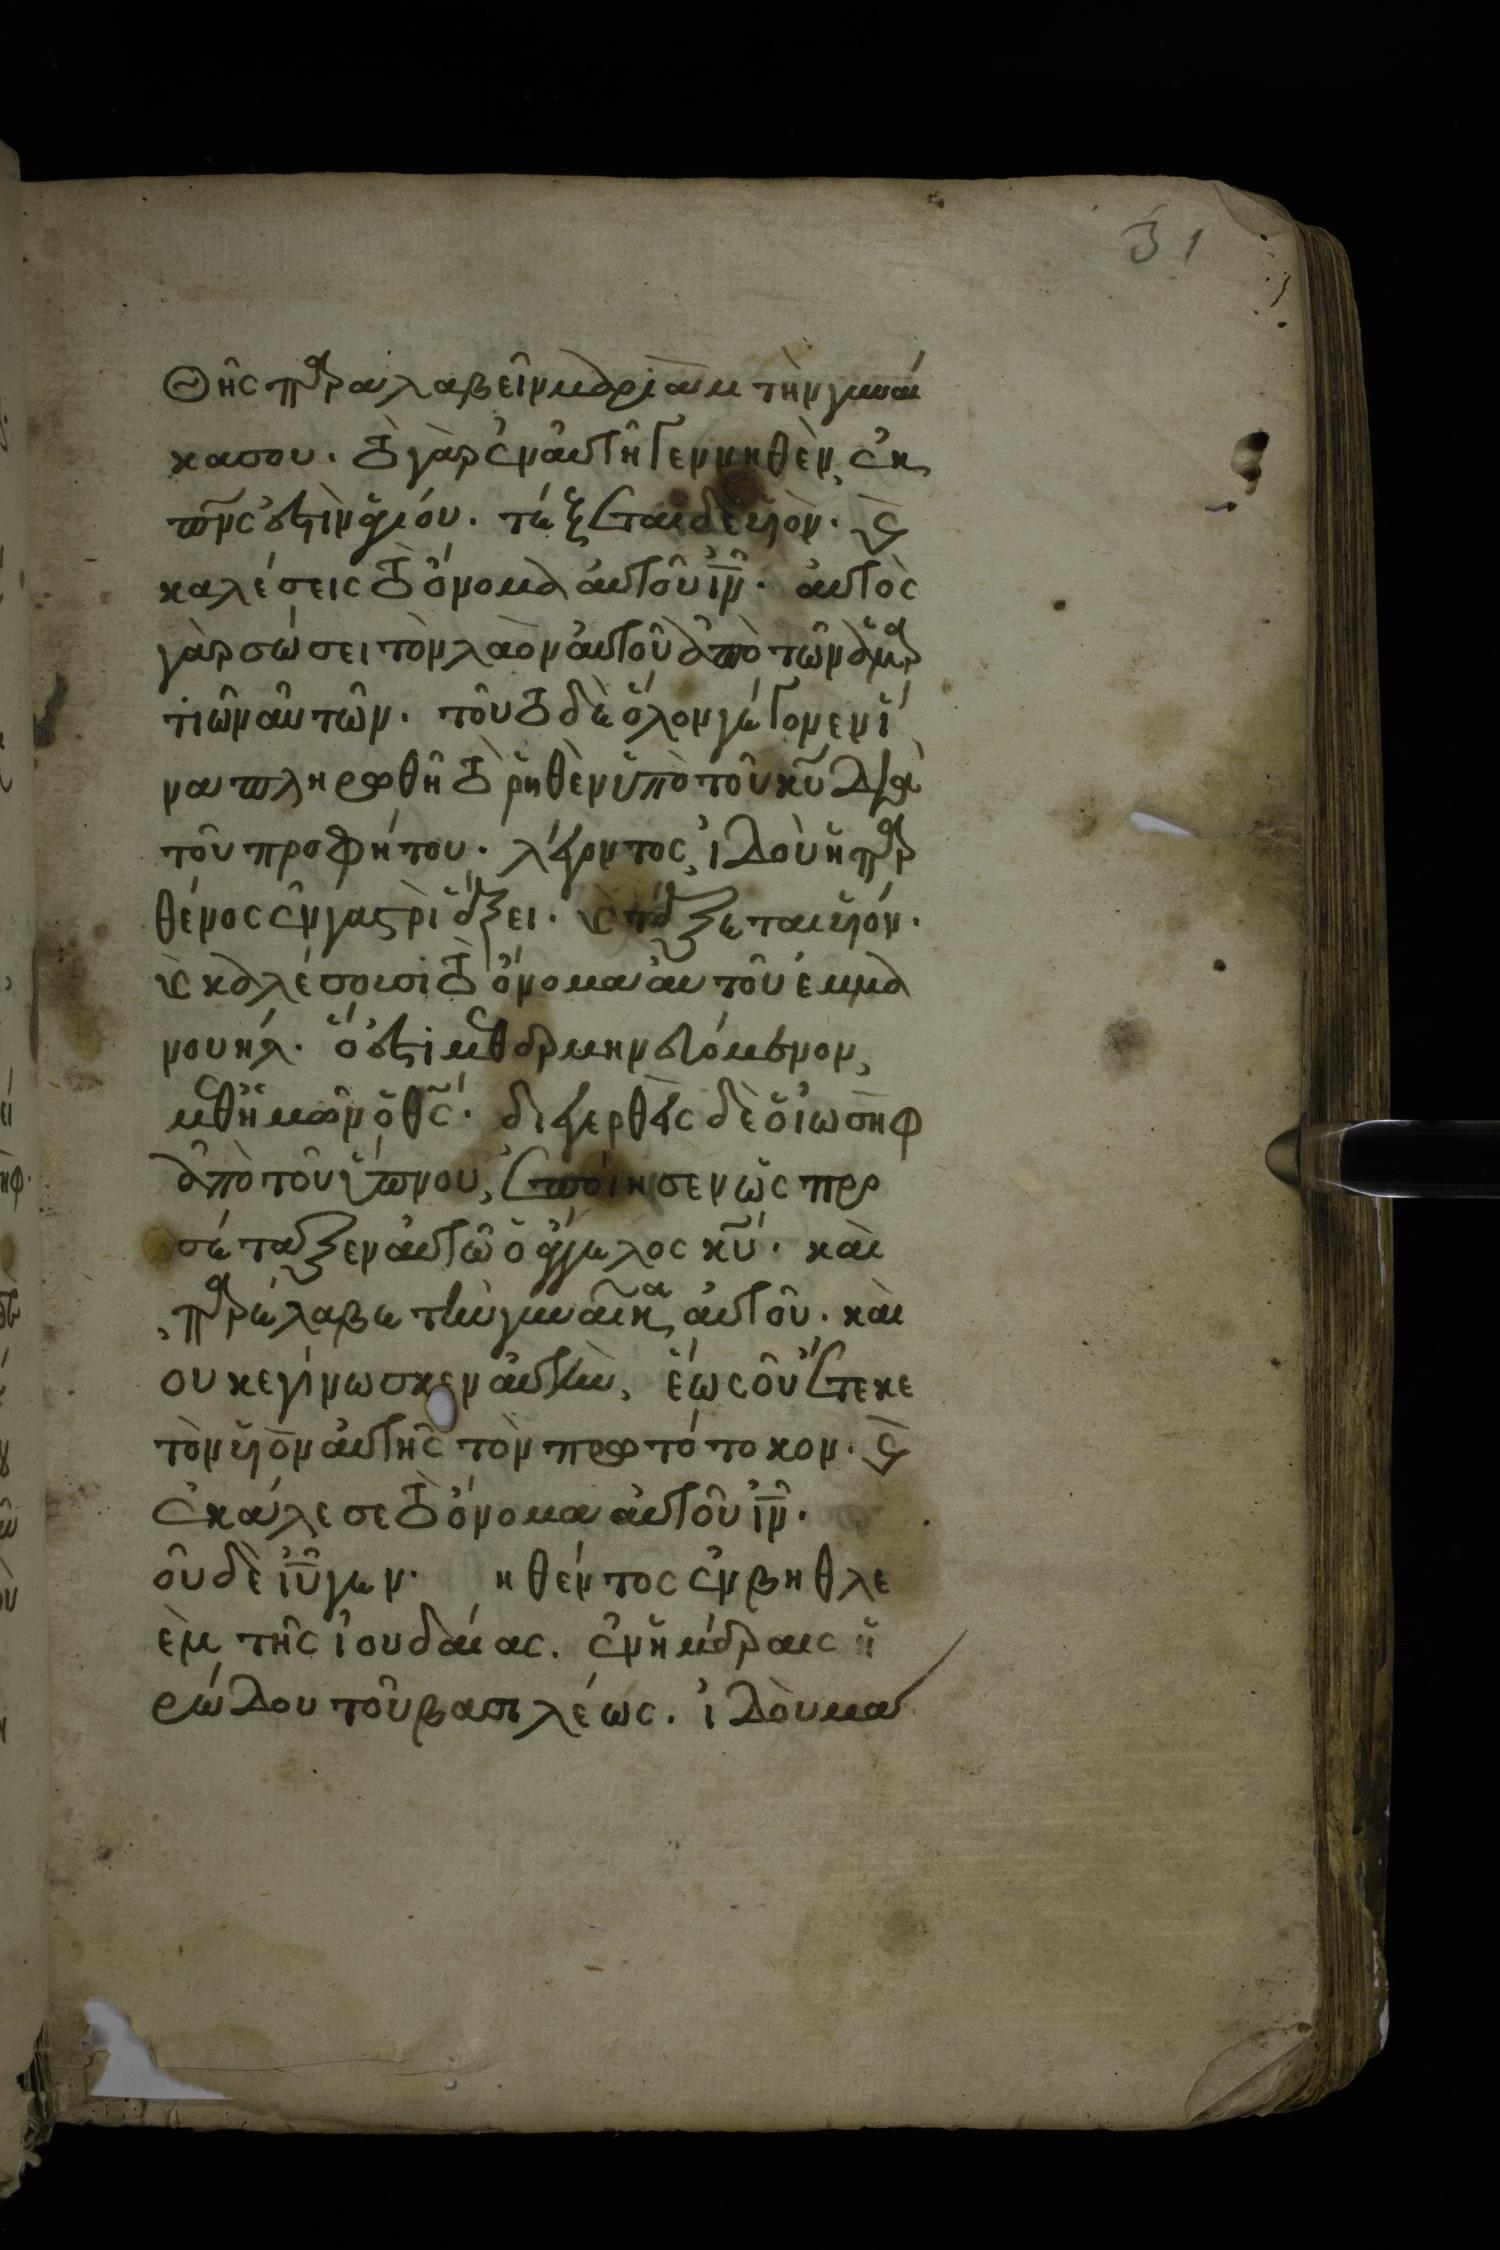 31
θῆς παραλαβεῖν μαριὰμ τὴν γυναί
κα σου. τὸ γὰρ ἐν αὐτῆ γεννηθὲν, ἐκ
πν̅ς ἐστὶν ἁγίου. τέξεται δὲ υἱὸν. καὶ
καλέσεις τὸ ὄνομα αὐτοῦ ι̅ν̅. αὐτὸς
γὰρ σώσει τὸν λαὸν αὐτοῦ ἀπὸ τῶν ἁμαρ
τιῶν αὐτῶν. τοῦτο δὲ ὅλον γέγονεν ἵ
να πληρωθῆ τὸ ῥηθὲν ὑπὸ τοῦ κυ̅ διὰ
τοῦ προφήτου. λέγοντος, ἰδοὺ ἡ παρ
θένος ἐν γαστρὶ ἕξει. καὶ τέξεται υἱόν.
καὶ καλέσουσι τὸ ὄνομα αὐτοῦ ἐμμα
νουήλ. ὅ ἐστι μεθερμηνευόμενον,
μεθ ἡμῶν ὁ θς̅. διεγερθεὶς δὲ ὁ ἰωσὴφ
ἀπὸ τοῦ ὕπνου, ἐποίησεν ὡς προ
σέταξεν αὐτῶ ὁ ἄγγελος κυ̅. καὶ
παρέλαβε τὴν γυναῖκα αὐτοῦ. καὶ
ουκ εγίνωσκεν αὐτὴν, ἕως οὗ ἔτεκε
τὸν υἱὸν αὐτῆς τὸν πρωτότοκον. καὶ
ἐκάλεσε τὸ ὄνομα αὐτοῦ ι̅ν̅.
οῦ δὲ ι̅υ̅ γεν. ηθέντος ἐν βηθλε
ὲμ τῆς ἰουδαίας. ἐν ἡμέραις ἡ
ρώδου τοῦ βασιλέως. ἰδοὺ μα